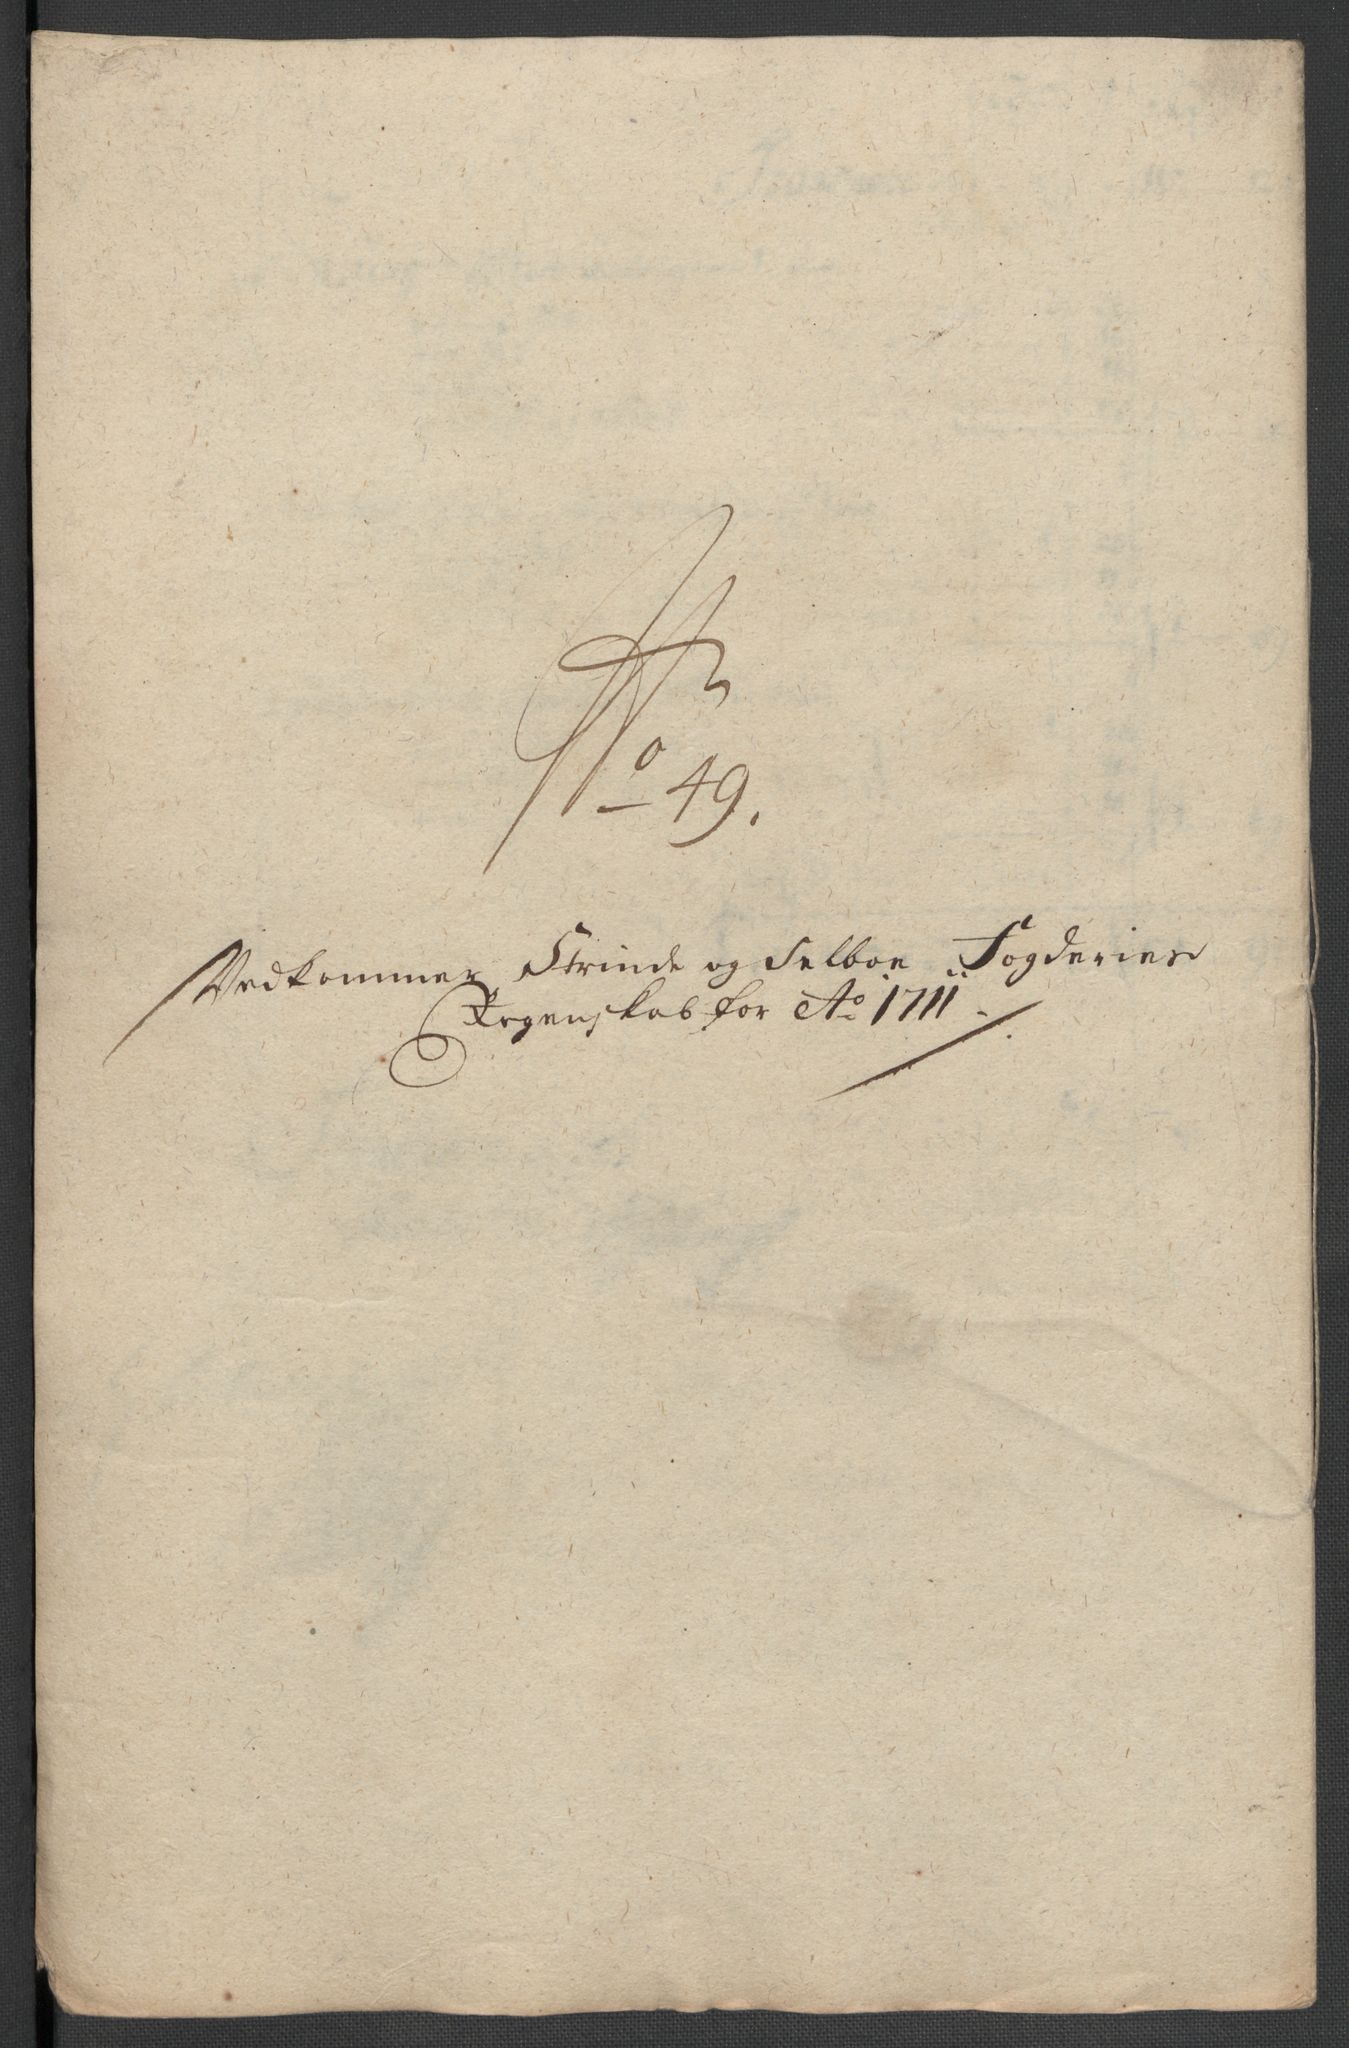 No 49.
Vedkommer Strinde og Selboe Fogderies
Regenskab for Ao 1711.